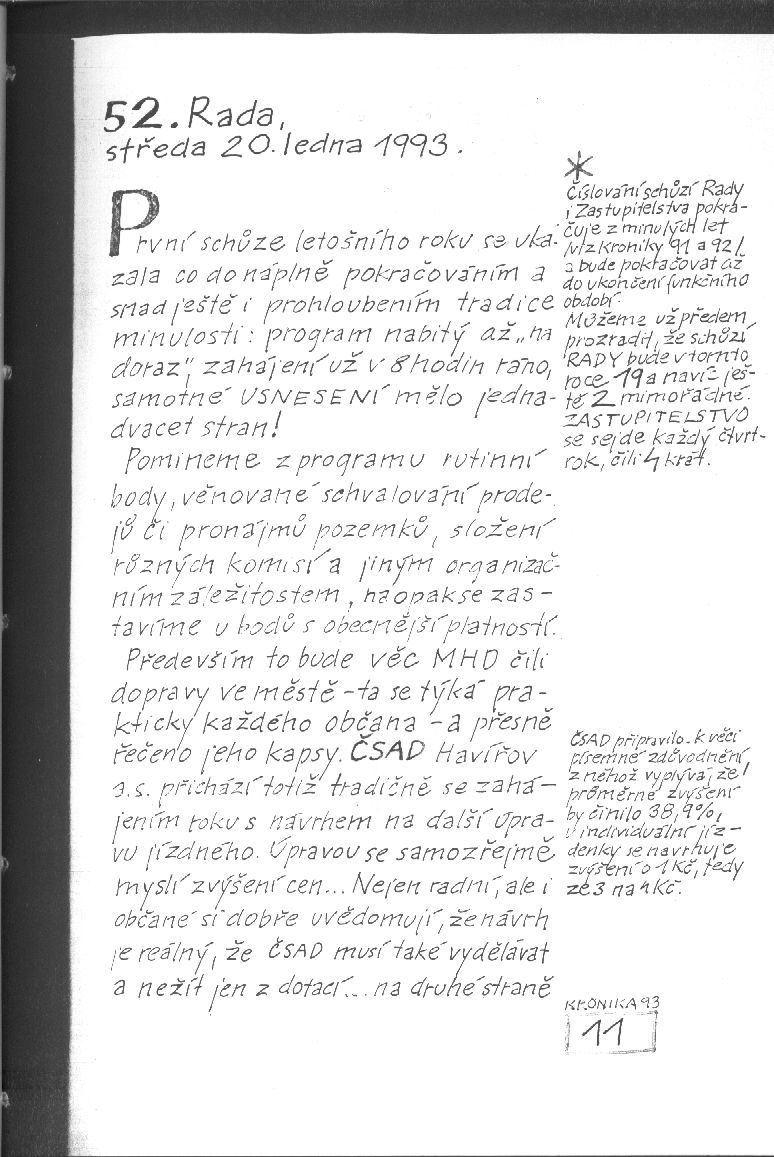 52. Rada,
středa 20. ledna 1993.
První schůze letošního roku se uká-
zala co do náplně pokračováním a
snad ještě i prohloubením tradice
minulosti: program nabitý až „na
doraz", zahájení už v 8 hodin ráno,
samotné USNESENÍ mělo jedna-
dvacet stran!
Pomineme z programu rutinní
body, věnované schvalování prode-
jů či pronájmů pozemků, složení
různých komisí a jiným organizač-
ním záležitostem, naopak se zas-
tavíme u bodů s obecnější platností.
Především to bude věc MHD čili
dopravy ve městě - ta se týká pra-
kticky každého občana - a přesně
řečeno jeho kapsy. ČSAD Havířov
a.s. přichází totiž tradičně se zahá-
jením roku s návrhem na další úpra-
vu jízdného. Úpravou se samozřejmě
myslí zvýšení cen... Nejen radní, ale i
občané si dobře uvědomují, že návrh
je reálný, že ČSAD musí také vydělávat
a nežít jen z dotací... na druhé straně
*
Číslování schůzí Rady
i Zastupitelstva pokra-
čuje z minulých let
/viz Kroniky 91 a 92/
a bude pokračovat až
do ukončení funkčního
období.
Můžeme už předem
prozradit, že schůzí
RADY bude v tomto
roce 19 a navíc ješ-
tě 2 mimořádné.
ZASTUPITELSTVO
se sejde každý čtvrt-
rok, čili 4 krát.
ČSAD připravilo k věci
písemné zdůvodnění,
z něhož vyplývá, že
průměrné zvýšení
by činilo 38,9%,
u individuální jíz-
denky se navrhuje
zvýšení o 1 Kč, tedy
ze 3 na 4 Kč.
KRONIKA 93
11